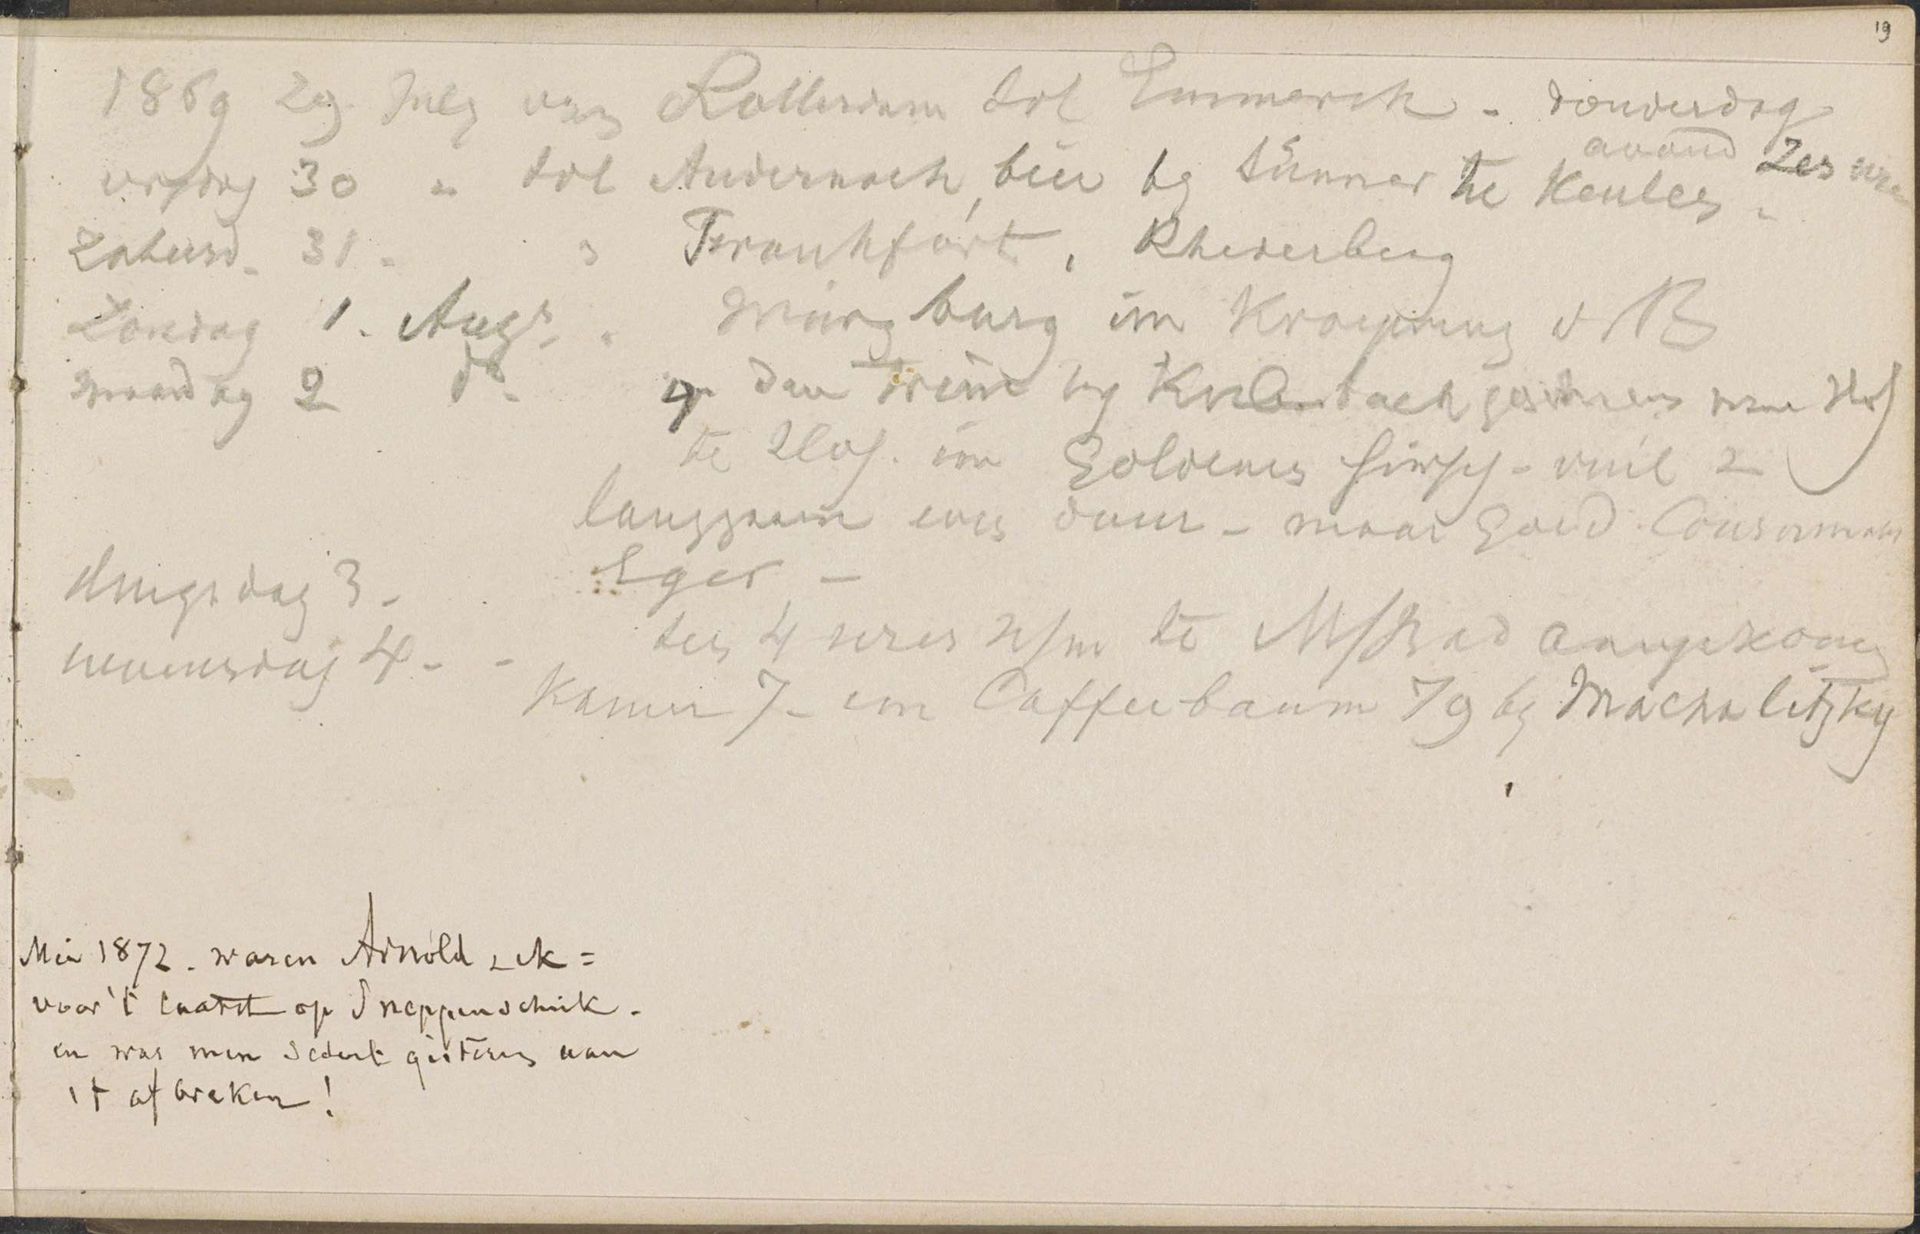 19
1869 29 July van Rotterdam tot Emmerich - donderdag
avond zes uur
vrydag 30 " tot Andernach, bier by Sünner te Keulen -
Zaturd. 31 - " Frankfort, Rhederberg
Zondag 1. Augs. " burg im Kronprinz v B
maandag 2 do. den trein by Kulmbach naar Hof
te Hof. im Goldenen Hirsch - vuil &
langzaam en duur - maar goed
dingsdag 3 - Eger -
woensdag 4 - - ten 4 uren n/m te M/Bad aangekomen
Kamer 7 - im Caffeebaum 79 by Machalitzky
Mei 1872. waren Arnold & ik =
voor 't laatst op Sneppenschuk.
en was men sedert gisteren aan
't afbreken!